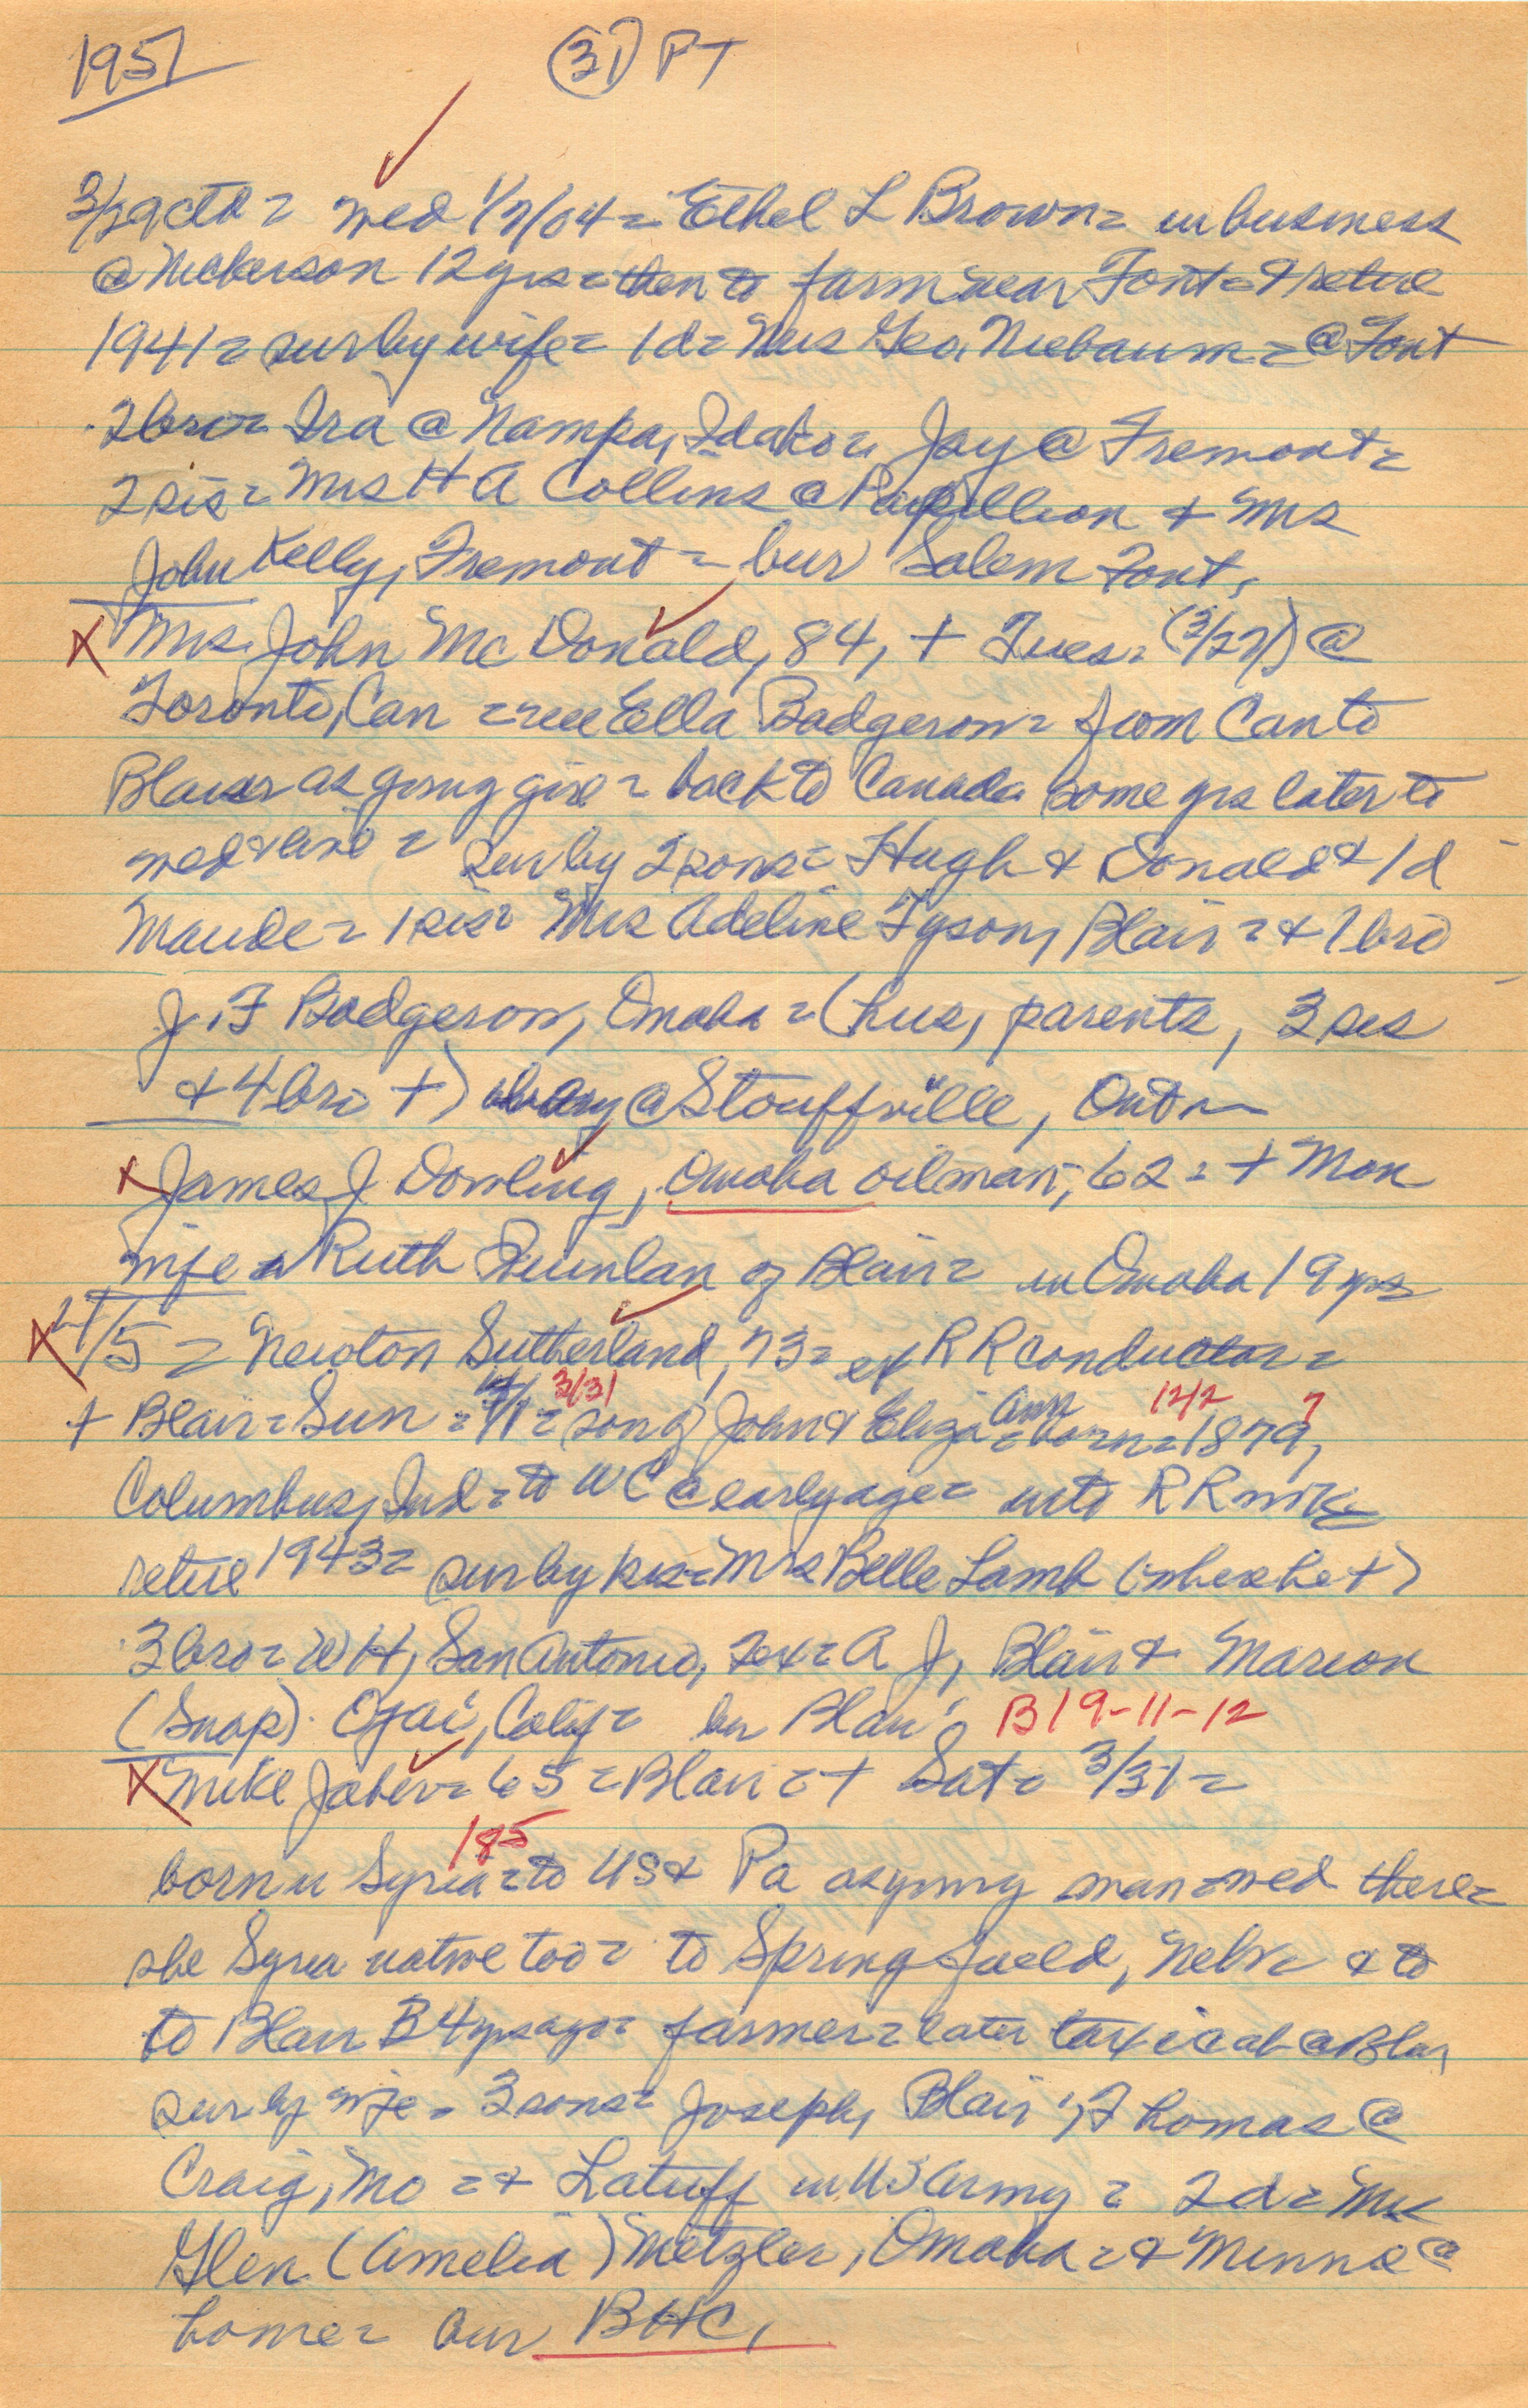 1951 (31) PT
3/29 ctd = wed 1/7/04 = Ethel L Brown = in business
@ Nickerson 12 yrs = then to farm near Font = & retire
1941 = sur by wife = 1 d = Mrs Geo Niebaum = @ Font
2 bro = Ira @ Nampa, Idaho = Jay @ Fremont =
2 sis = Mrs H A Collins @ Papillion + Mrs
John Kelly, Fremont = bur Salem Font.
X Mrs. John McDonald, 84, + Tues = (3/27) @
Toronto, Can = nee Ella Badgerow = from Can to
Blair as young girl = back to Canada some yrs later to
wed & live = sur by 2 sons = Hugh & Donald & 1 d
Maude = 1 sis = Mrs Adeline Tyson, Blair = & 1 bro
J. F Badgerow, Omaha = (hus, parents, 3 sis
& 4 bro +) @ Stouffville, Ont
X James J. Dowling, Omaha oilman, 62 = + Mon
wife Ruth Quinlan of Blair = in Omaha 19 yrs
X 4/5 = Newton Sutherland, 73 = ex RR conductor =
3/31 Ann 12/2 7
+ Blair = Sun = 4/1 = son of John & Eliza = born = 1879,
Columbus, Ind = to WC @ early age = into RR wk
retire 1943 = sur by sis = Mrs Belle Lamb (where he +)
3 bro = W H, San Antonio, Tex = A J, Blair & Marion
(Snap). Ojai, Calif = bur Blair B 19-11-12
X Mike Jaber = 65 = Blair = + Sat = 3/31 =
185
born in Syria = to US & Pa as young man = wed there =
she Syria native too = to Springfield, Neb = & to
to Blair B 4 yrs ago = farmer = later taxicab @ Blair
sur by wife = 3 sons = Joseph, Blair, Thomas @
Craig, Mo = & Latuff in US Army = 2 d = Mrs
Glen (Amelia) Metzler, Omaha = & Minnie @
home = bur BHC,